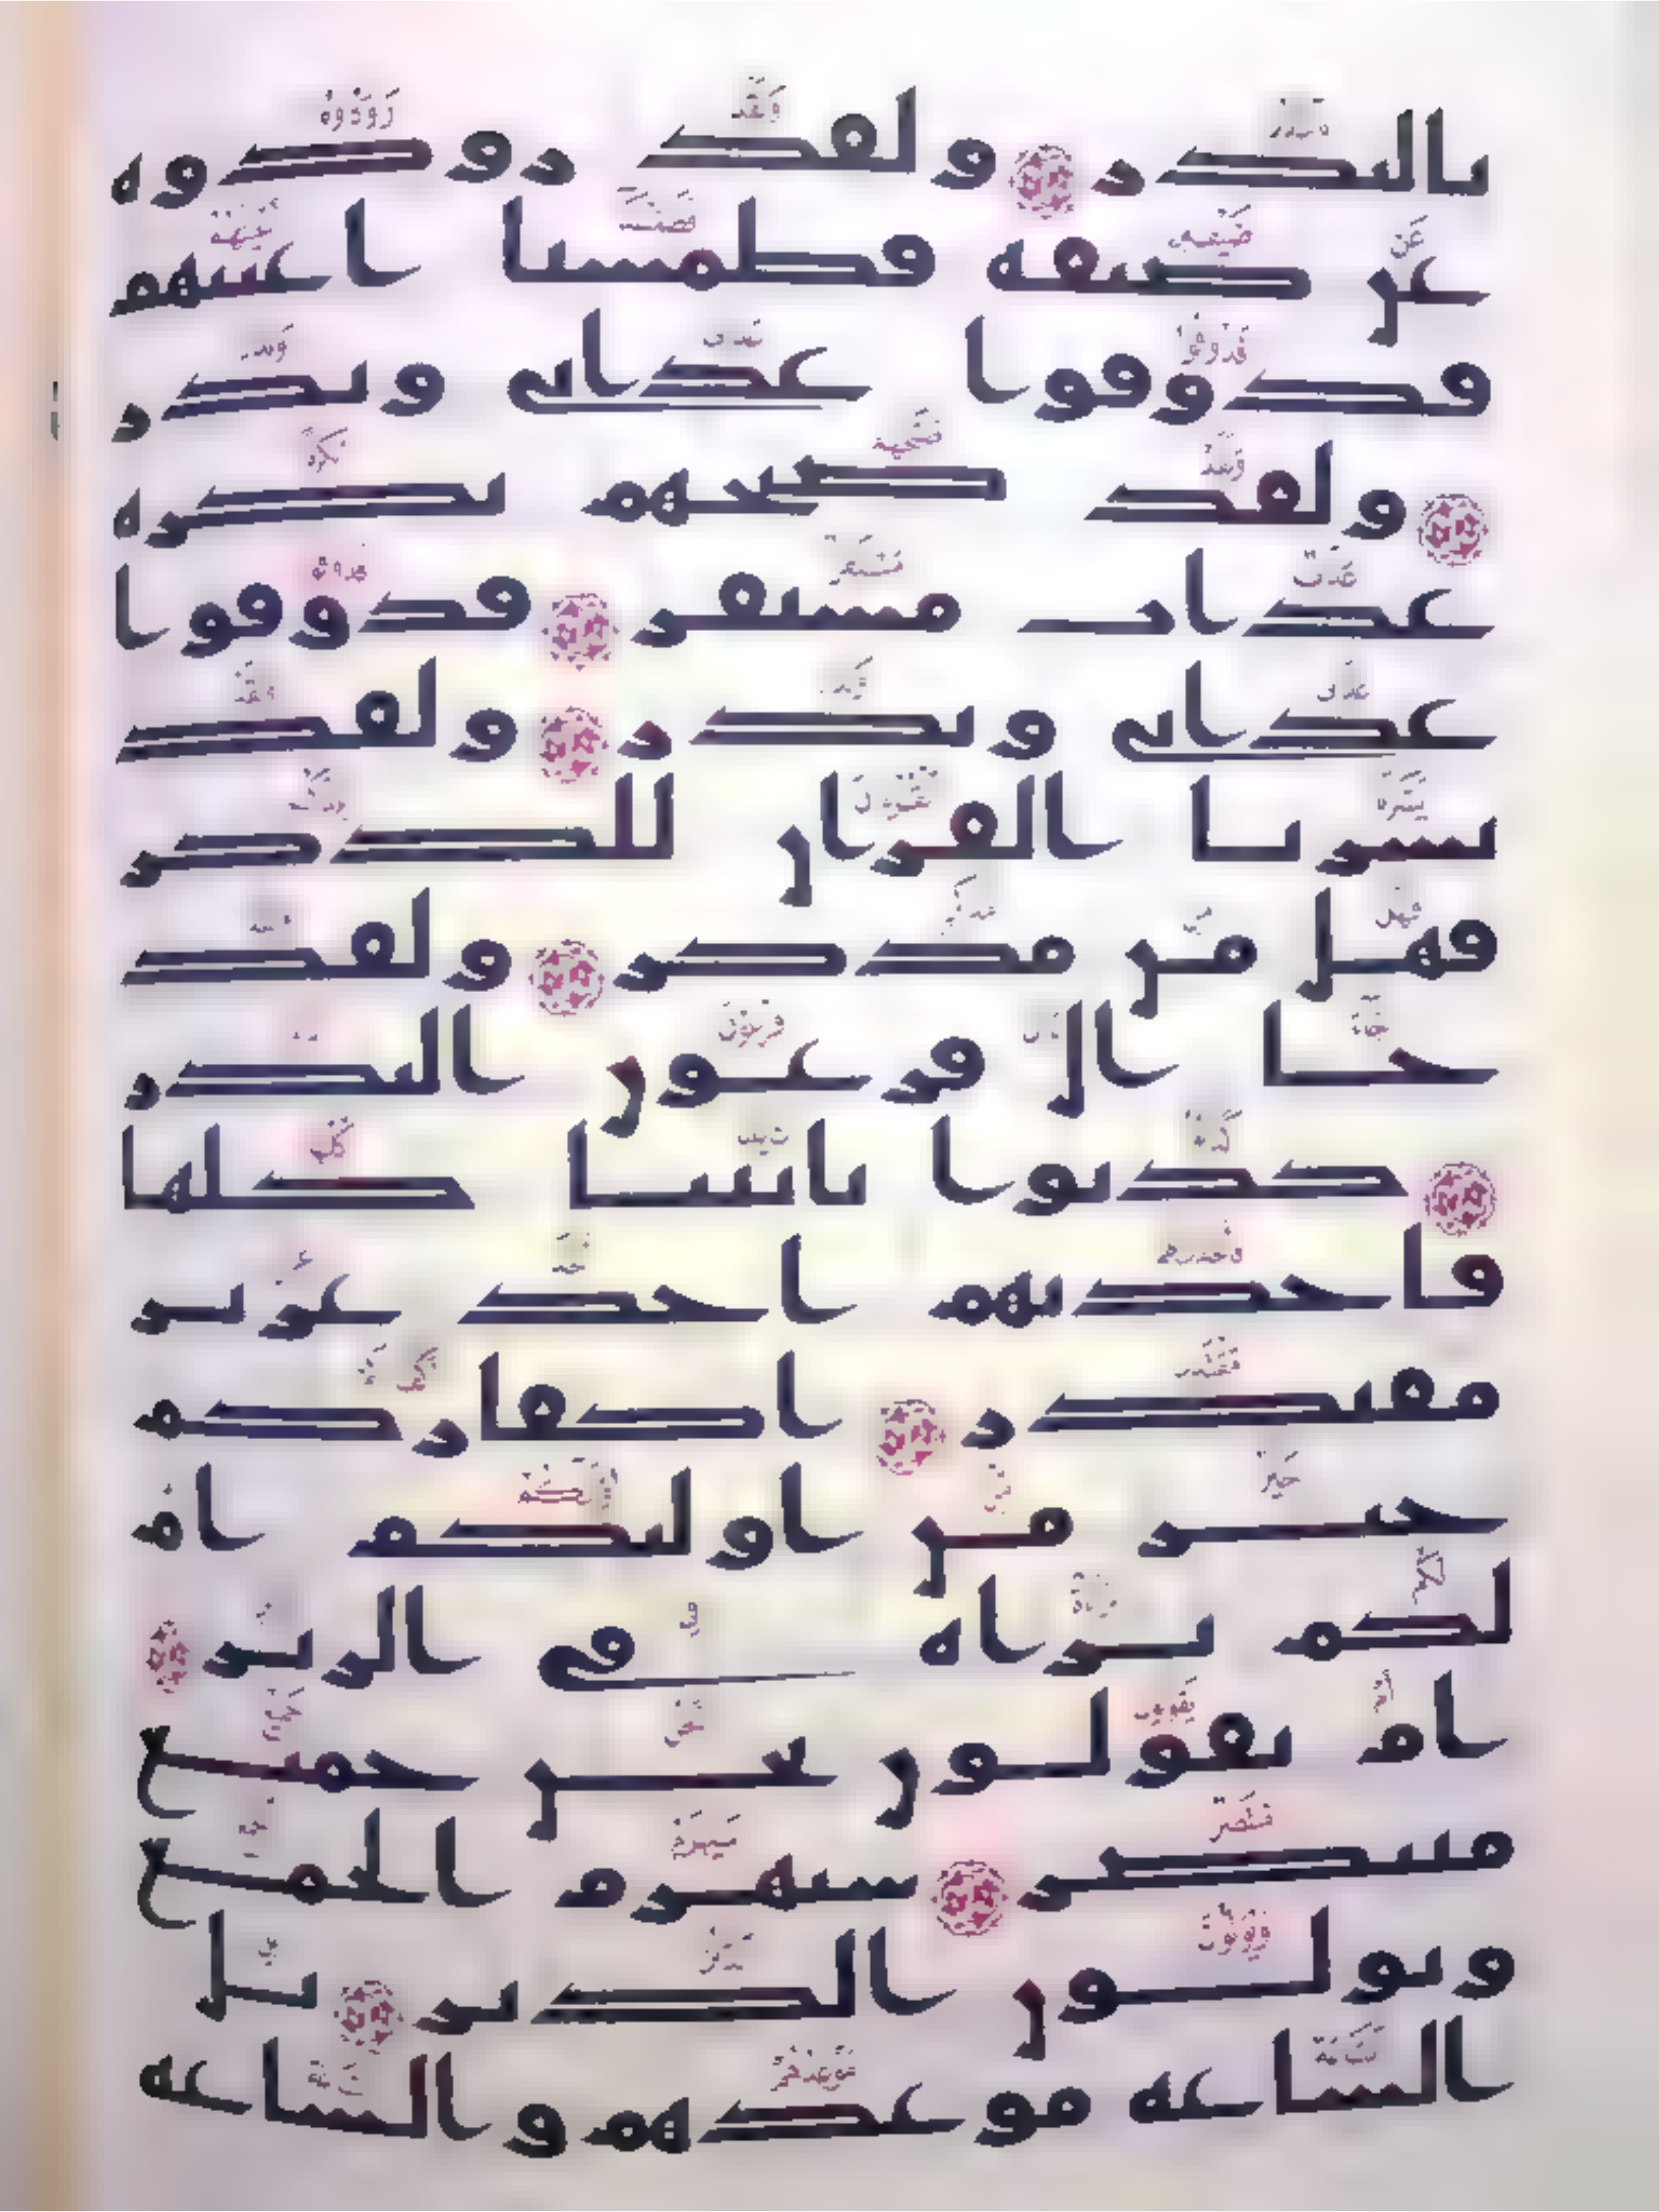 بالنذر ولقد رودوه
عن ضيفه فطمسنا اعينهم
فذوقوا عذابي ونذر
ولقد صبحهم بكره
عذاب مستقر فذوقوا
عذابي ونذر ولقد
يسرنا القران للذكر
فهل من مدكر ولقد
جا ال فرعون النذر
كذبوا باىتنا كلها
فاخذنهم اخذ عزيز
مقتدر اكفاركم
خير من اوليكم ام
لكم براه في الزبر
ام يقولون نحن جميع
منتصر سيهزم الجمع
ويولون الدبر بل
الساعه موعدهم والساعه